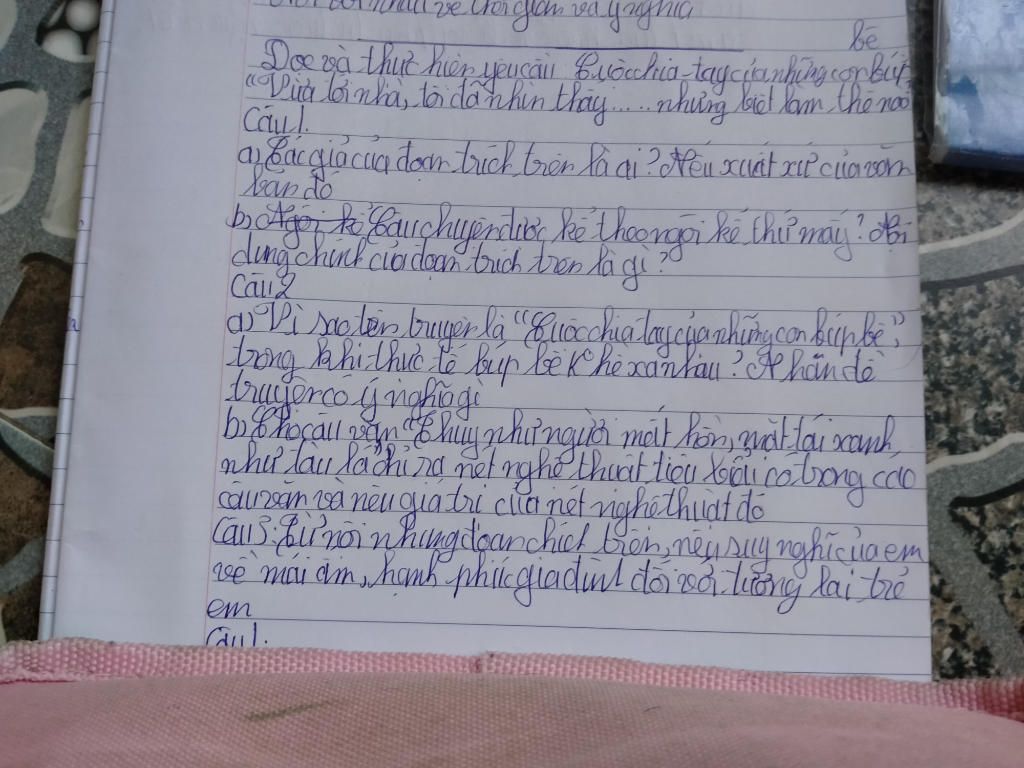 nhau về thời gian và ý nghĩa
bê
Đọc và thực hiện yêu cầu Cuộc chia tay của những con búp
"Vừa tới nhà, tôi đã nhìn thấy..... nhưng biết làm thế nào
Câu 1.
a) Tác giả của đoạn trích trên là ai? Nêu xuất xứ của văn
bản đó
b) Ngôi kể Câu chuyện được kể theo ngôi kể thứ mấy? Nội
dung chính của đoạn trích trên là gì?
Câu 2
a) Vì sao tên truyện là "Cuộc chia tay của những con búp bê",
trong khi thực tế búp bê k hề xa nhau? Nhan đề
truyện có ý nghĩa gì
b) Cho câu văn "Thuỷ như người mất hồn, mặt tái xanh
như tàu lá chỉ ra nét nghệ thuật tiêu biểu có trong các
câu văn và nêu giá trị của nét nghệ thuật đó
Câu 3: Từ nội nhung đoạn chích trên, nêy suy nghĩ của em
về mái ấm, hạnh phúc gia đình đối với tương lai trẻ
em
Câu 1.